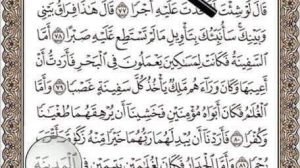 قَالَ لَوْ شِئْتَ لَتَّخَذْتَ عَلَيْهِ أَجْرًا ٧٧ قَالَ هَٰذَا فِرَاقُ بَيْنِي
وَبَيْنِكَ سَأُنَبِّئُكَ بِتَأْوِيلِ مَا لَمْ تَسْتَطِع عَّلَيْهِ صَبْرًا ٧٨ أَمَّا
السَّفِينَةُ فَكَانَتْ لِمَسَاكِينَ يَعْمَلُونَ فِي الْبَحْرِ فَأَرَدتُّ أَنْ
أَعِيبَهَا وَكَانَ وَرَاءَهُم مَّلِكٌ يَأْخُذُ كُلَّ سَفِينَةٍ غَصْبًا ٧٩ وَأَمَّا
الْغُلَامُ فَكَانَ أَبَوَاهُ مُؤْمِنَيْنِ فَخَشِينَا أَن يُرْهِقَهُمَا طُغْيَانًا
وَكُفْرًا ٨٠ فَأَرَدْنَا أَن يُبْدِلَهُمَا رَبُّهُمَا خَيْرًا مِّنْهُ زَكَاةً وَأَقْرَبَ